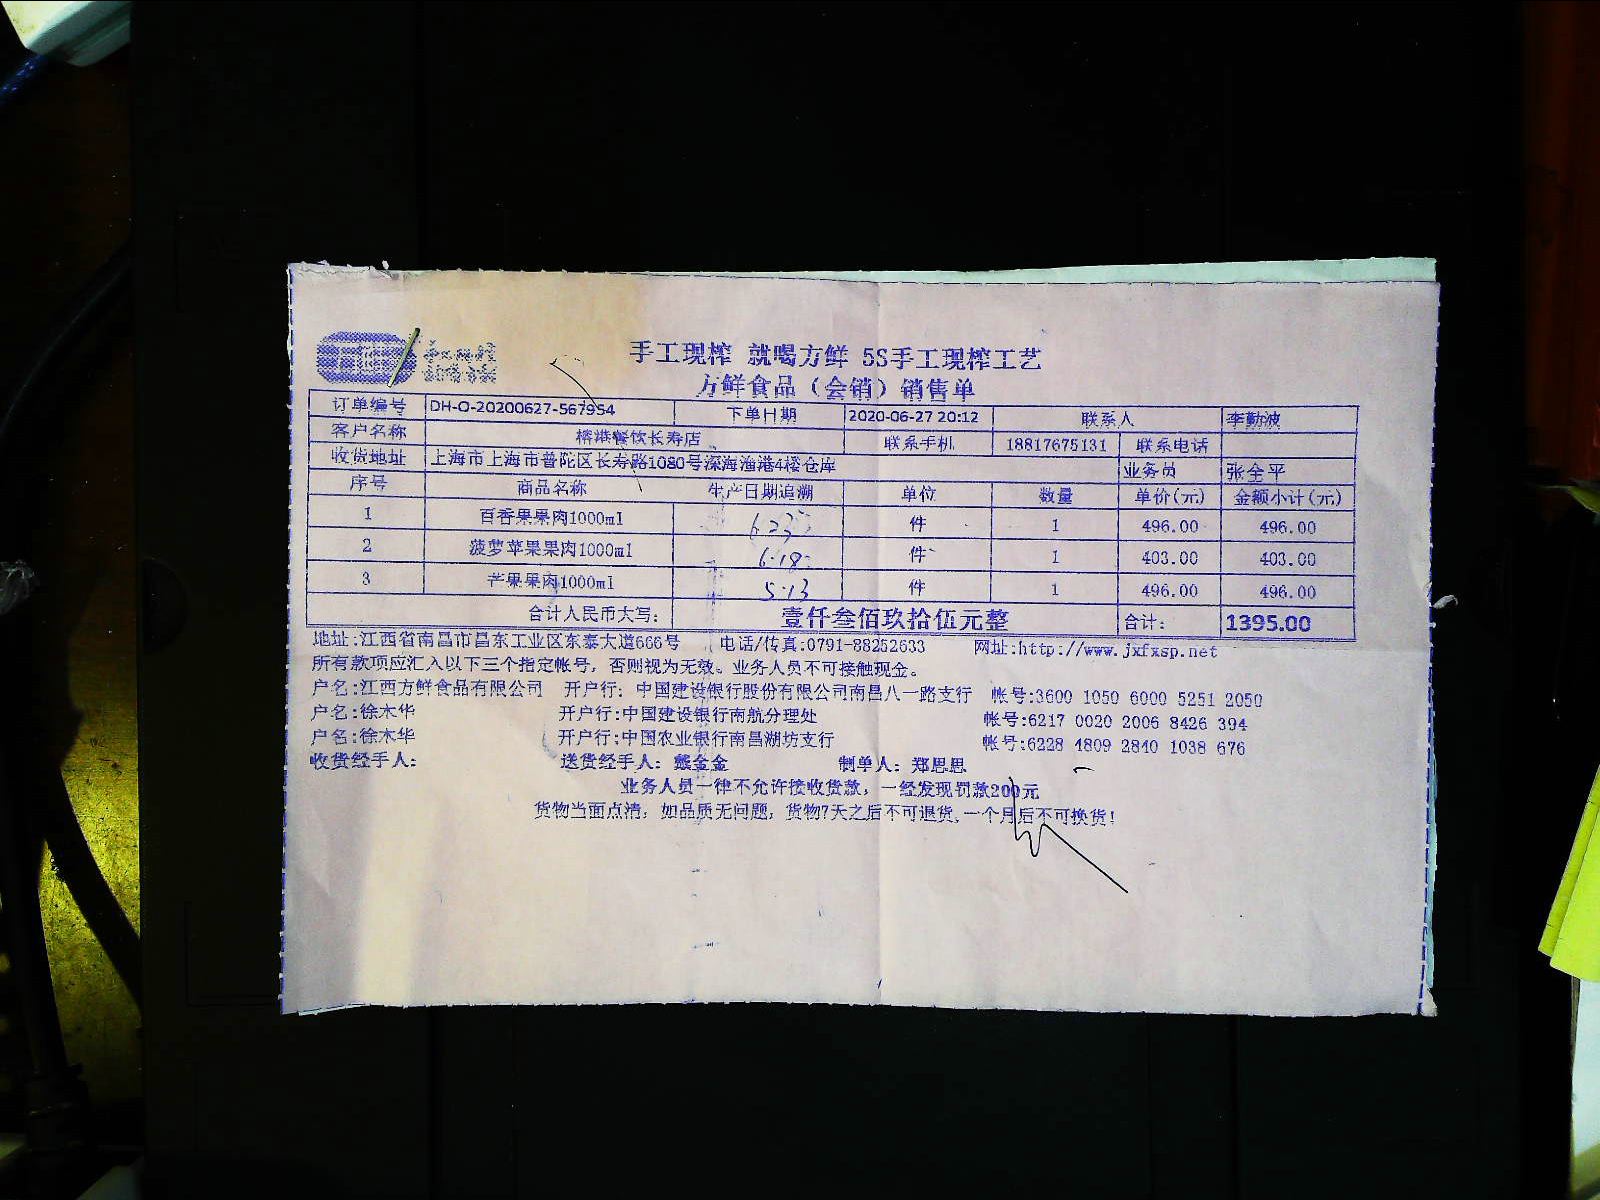 手工现榨 就喝方鲜 5S手工现榨工艺
方鲜食品（会销）销售单
订单编号 DH-O-20200627-567954 下单日期 2020-06-27 20:12 联系人 李勤波
客户名称 榕港餐饮长寿店 联系手机 18817675131 联系电话
收货地址 上海市上海市普陀区长寿路1080号深海渔港4楼仓库 业务员 张全平
序号 商品名称 生产日期追溯 单位 数量 单价(元) 金额小计(元)
1 百香果果肉1000ml 6.23 件 1 496.00 496.00
2 菠萝苹果果肉1000ml 6.18 件 1 403.00 403.00
3 芒果果肉1000ml 5.13 件 1 496.00 496.00
合计人民币大写： 壹仟叁佰玖拾伍元整 合计： 1395.00
地址:江西省南昌市昌东工业区东泰大道666号 电话/传真:0791-88252633 网址:http://www.jxfxsp.net
所有款项应汇入以下三个指定帐号，否则视为无效。业务人员不可接触现金。
户名:江西方鲜食品有限公司 开户行: 中国建设银行股份有限公司南昌八一路支行 帐号:3600 1050 6000 5251 2050
户名:徐木华 开户行:中国建设银行南航分理处 帐号:6217 0020 2006 8426 394
户名:徐木华 开户行:中国农业银行南昌湖坊支行 帐号:6228 4809 2840 1038 676
收货经手人: 送货经手人: 戴金金 制单人: 郑思思
业务人员一律不允许接收货款，一经发现罚款200元
货物当面点清，如品质无问题，货物7天之后不可退货,一个月后不可换货！